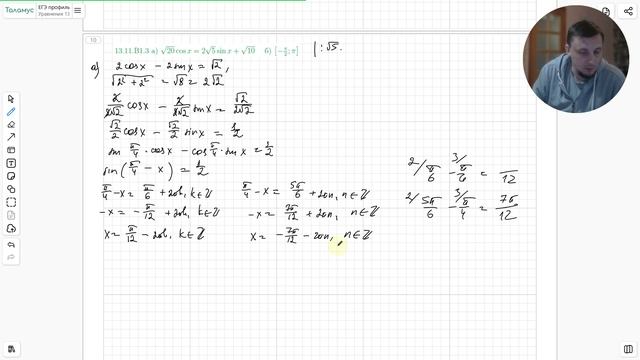 Таламус
ЕГЭ профиль
Уравнения 13
10
13.11.B1.3 а) √20 cos x = 2√5 sin x + √10 б) [-π/2; π] | : √5.
а) 2cosx - 2sinx = √2,
√(2² + 2²) = √8 = 2√2
2/2√2 cosx - 2/2√2 sinx = √2/2√2
√2/2 cosx - √2/2 sinx = 1/2
sin π/4 · cosx - cos π/4 · sinx = 1/2
sin(π/4 - x) = 1/2
π/4 - x = π/6 + 2πk, k∈ℤ
-x = -π/12 + 2πk, k∈ℤ
x = π/12 - 2πk, k∈ℤ
π/4 - x = 5π/6 + 2πn, n∈ℤ
-x = 7π/12 + 2πn, n∈ℤ
x = -7π/12 - 2πn, n∈ℤ
2/ π/6 - 3/ π/4 = /12
2/ 5π/6 - 3/ π/4 = 7π/12